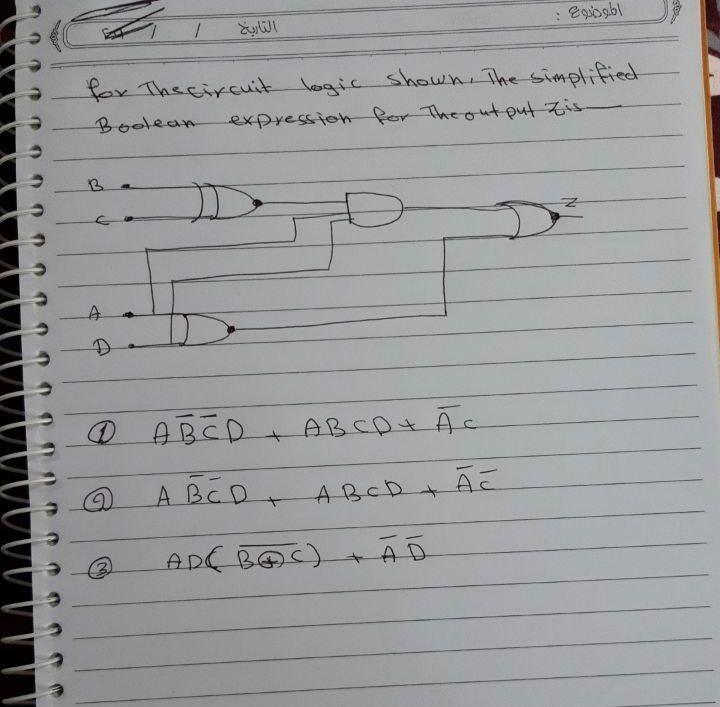 الموضوع :
التاريخ / /
for The circuit logic shown, The simplified
Boolean expression for The output Z is
B
C
Z
A
D
① AB̅C̅D + ABCD + A̅C
② AB̅C̅D + ABCD + A̅C̅
③ AD(B̅⊕̅C̅) + A̅D̅